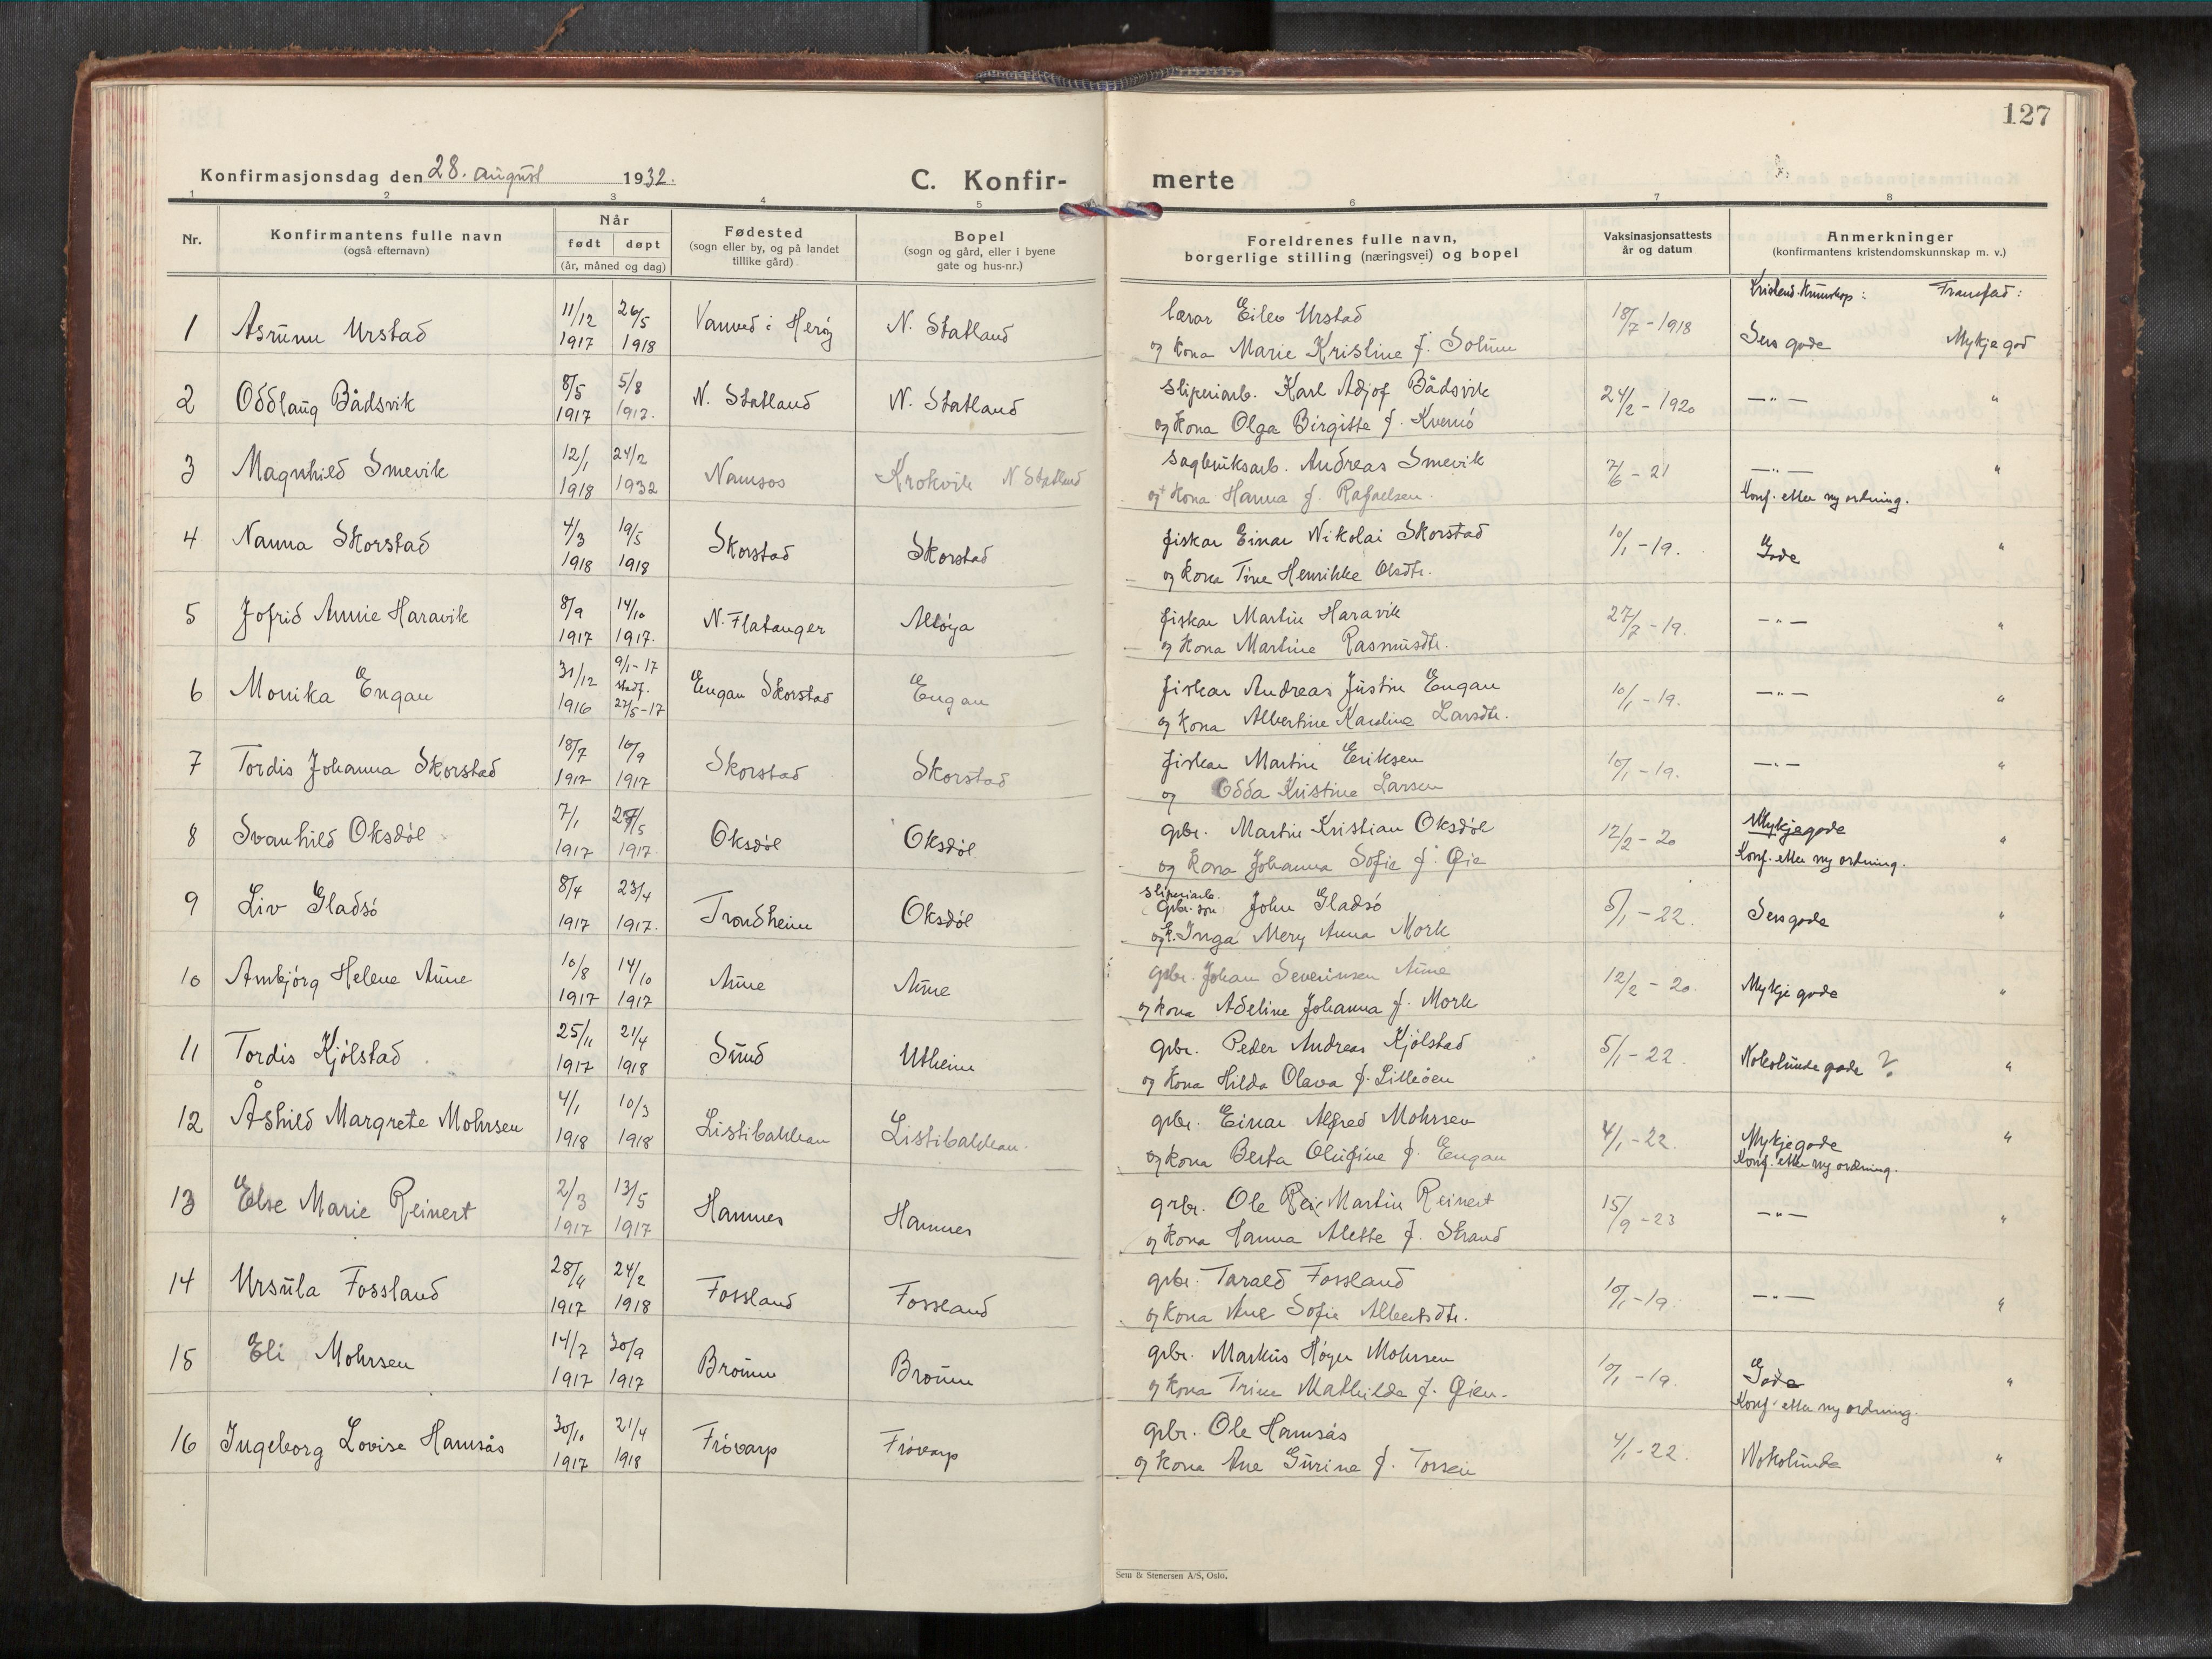 127
Konfirmasjonsdag den 28. august 1932.
C. Konfir- merte
1 2 3 4 5 6 7 8
Nr.
Konfirmantens fulle navn
(også efternavn)
Når
født døpt
(år, måned og dag)
Fødested
(sogn eller by, og på landet
tillike gård)
Bopel
(sogn og gård, eller i byene
gate og hus-nr.)
Foreldrenes fulle navn,
borgerlige stilling (næringsvei) og bopel
Vaksinasjonsattests
år og datum
Anmerkninger
(konfirmantens kristendomskunnskap m. v.)
Kristend.kunnskap: Framferd:
1 Asrunn Urstad 11/12 1917 26/5 1918 Vanved i Herøy N. Statland lærar Eilev Urstad 18/7-1918 Sers gode Mykje god
og kona Marie Kristine f. Solum
2 Oddlaug Bådsvik 8/5 1917 5/8 1917. N. Statland N. Statland sliperiarb. Karl Adjof Bådsvik 24/2-1920 —"— "
og kona Olga Birgitte f. Kvernø
3 Magnhild Smevik 12/1 1918 24/2 1932 Namsos Krokvik N Statland sagbruksarb. Andreas Smevik 7/6-21 —"— "
og kona Hanna f. Rafaelsen. Konf. etter ny ordning.
4 Nanna Skorstad 4/3 1918 19/5 1918 Skorstad Skorstad fiskar Einar Nikolai Skorstad 10/1-19. Gode "
og kona Tine Henrikke Olsdtr.
5 Jofrid Annie Haravik 8/9 1917 14/10 1917. N. Flatanger Altøya fiskar Martin Haravik 27/7-19. —"— "
og kona Martine Rasmusdtr.
6 Monika Engan 31/12 1916 9/1-17 stadf. 27/5-17 Engan Skorstad Engan fiskar Andreas Justin Engan 10/1-19. —"— "
og kona Albertine Karoline Larsdtr.
7 Tordis Johanna Skorstad 18/7 1917 16/9 1917 Skorstad Skorstad fiskar Martin Eriksen 10/1-19. —"— "
og Odda Kristine Larsen
8 Svanhild Oksdøl 7/1 1917 27/5 1917. Oksdøl Oksdøl gbr. Martin Kristian Oksdøl 12/2-20 Mykje gode "
og kona Johanna Sofie f. Øie Konf. etter ny ordning.
9 Liv Gladsø 8/4 1917 23/4 1917. Trondheim Oksdøl sliperiarb. (Gbr. søn) John Gladsø 5/1-22. Sers gode "
og k. Inga Mery Anna Mork
10 Arnbjørg Helene Aune 10/8 1917 14/10 1917 Aune Aune gbr. Johan Severinsen Aune 12/2-20. Mykje gode "
og kona Adeline Johanna f. Mork
11 Tordis Kjølstad 25/11 1917 21/4 1918 Sund Utheim gbr. Peder Andreas Kjølstad 5/1-22. Nokolunde gode ? "
og kona Hilda Olava f. Lilleøen
12 Åshild Margrete Mohrsen 4/1 1918 10/3 1918 Listibakkan Listibakkan. gbr. Einar Alfred Mohrsen 4/1-22. Mykje gode "
og kona Berta Olufine f. Engan Konf. etter ny ordning.
13 Else Marie Reinert 2/3 1917 13/5 1917 Hamnes Hamnes grbr. Ole Rei Martin Reinert 15/9-23 —"— "
og kona Hanna Alette f. Strand
14 Ursula Fossland 28/11 1917 24/2 1918 Fossland Fossland gbr. Tarald Fossland 10/1-19. —"— "
og kona Ane Sofie Albertsdtr.
15 Eli Mohrsen 14/7 1917 30/9 1917 Braunn Braunn gbr. Markus Høyer Mohrsen 10/1-19. Gode "
og kona Trine Mathilde f. Øien. Konf. etter ny ordning.
16 Ingeborg Lovise Hamsås 30/10 1917 21/4 1918 Frøvarp Frøvarp gbr. Ole Hamsås 4/1-22. Nokolunde "
og kona Ane Gurine f. Torsen
Sem & Stenersen A/S, Oslo.